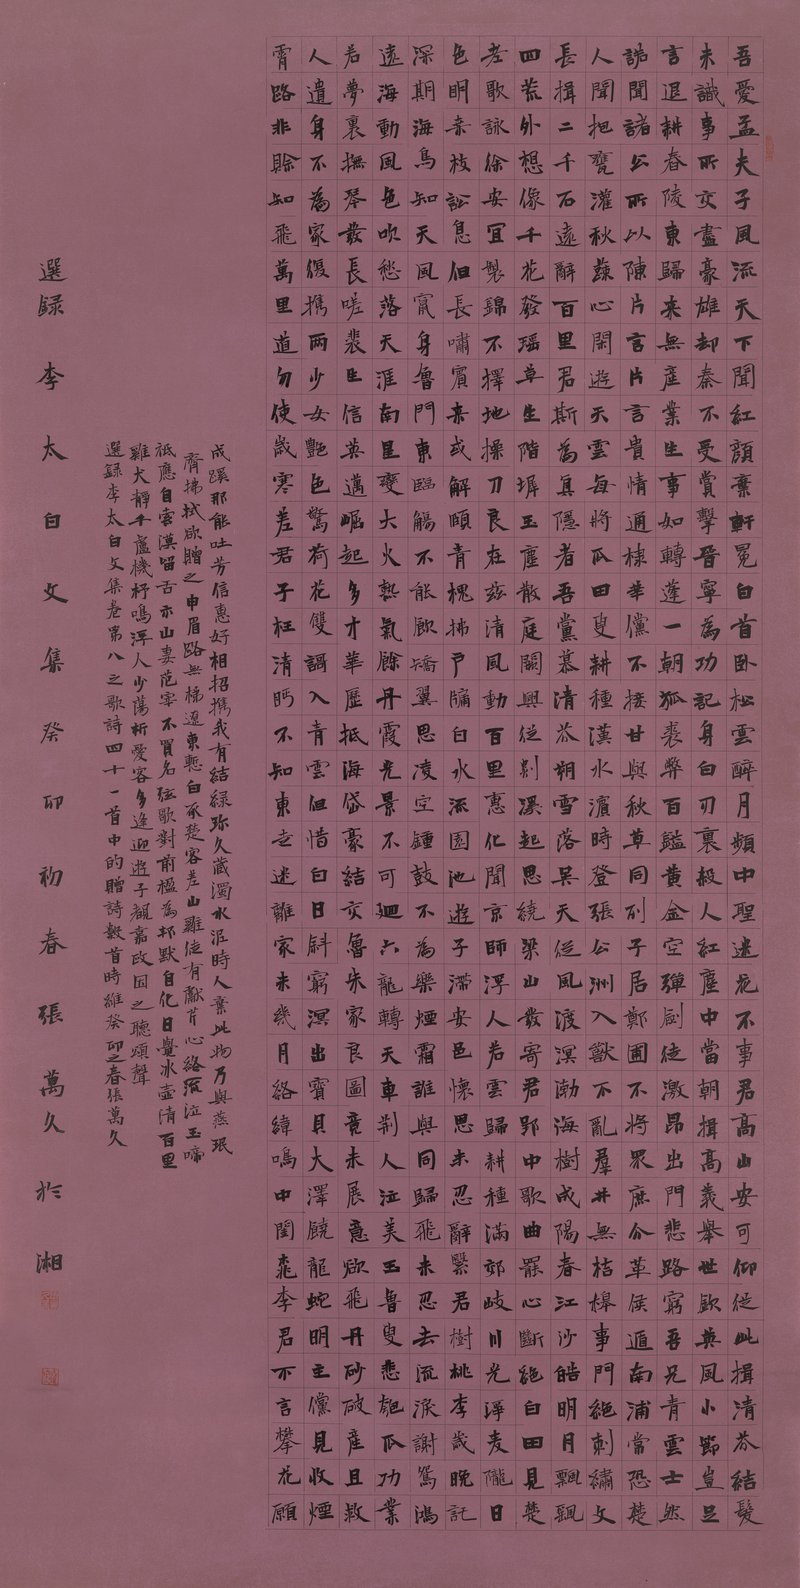 吾愛孟夫子風流天下聞紅顏棄軒冕白首臥松雲醉月頻中聖迷花不事君高山安可仰從此揖清芬結髮
未識事所交盡豪雄却秦不受賞擊晉寧為功託身白刃裏殺人紅塵中當朝揖高義舉世欽英風小節豈足
言退耕舂陵東歸來無產業生事如轉蓬一朝狐裘弊百鎰黃金空彈劍徒激昂出門悲路窮吾兄青雲士然
諾聞諸公所以陳片言片言貴情通棣華儻不接甘與秋草同列子居鄭圃不將眾庶分革侯遁南浦常恐楚
人聞抱甕灌秋蔬心閑遊天雲每將瓜田叟耕種漢水濱時登張公洲入獸不亂羣井無桔槔事門絕刺繡文
長揖二千石遠辭百里君斯為真隱者吾黨慕清芬朔雪落吳天從風渡溟渤海樹成陽春江沙皓明月飄颻
四荒外想像千花發瑤草生階墀玉塵散庭闕興從剡溪起思繞梁山發寄君郢中歌曲罷心斷絕白田見楚
老歌詠徐安宜製錦不擇地操刀良在茲清風動百里惠化聞京師浮人若雲歸耕種滿郊岐川光淨麥隴日
色明桑枝訟息但長嘯賓來或解頤青槐拂戶牖白水流園池遊子滯安邑懷思未忍辭繄君樹桃李歲晚託
深期海鳥知天風竄身魯門東臨觴不能飲矯翼思凌空鍾鼓不為樂煙霜誰與同歸飛未忍去流淚謝鴛鴻
遠海動風色吹愁落天涯南星變大火熱氣餘丹霞光景不可迴六龍轉天車荆人泣美玉魯叟悲匏瓜功業
若夢裏撫琴發長嗟裴生信英邁崛起多才華歷抵海岱豪結交魯朱家良圖竟未展意欲飛丹砂破產且救
人遺身不為家復攜兩少女艷色驚荷花雙謌入青雲但惜白日斜窮溟出寶貝大澤饒龍蛇明主儻見收煙
霄路非賒知飛萬里道勿使歲寒差君子枉清眄不知東走迷離家未幾月絡緯鳴中閨桃李君不言攀花願
成蹊那能吐芳信惠好相招攜我有結綠珍久藏濁水泥時人棄此物乃與燕珉
齊摭拭欲贈之申眉路無梯遼東慙白豕楚客羞山雞徒有獻芹心終流泣玉啼
祗應自索漠留舌示山妻范宰不買名弦歌對前楹為邦默自化日覺冰壺清百里
雞犬靜千廬機杼鳴浮人少蕩析愛客多逢迎遊子覩嘉政因之聽頌聲
選錄李太白文集卷第八之歌詩四十一首中的贈詩數首時維癸卯之春張萬久
選録李太白文集癸卯初春張萬久於湘